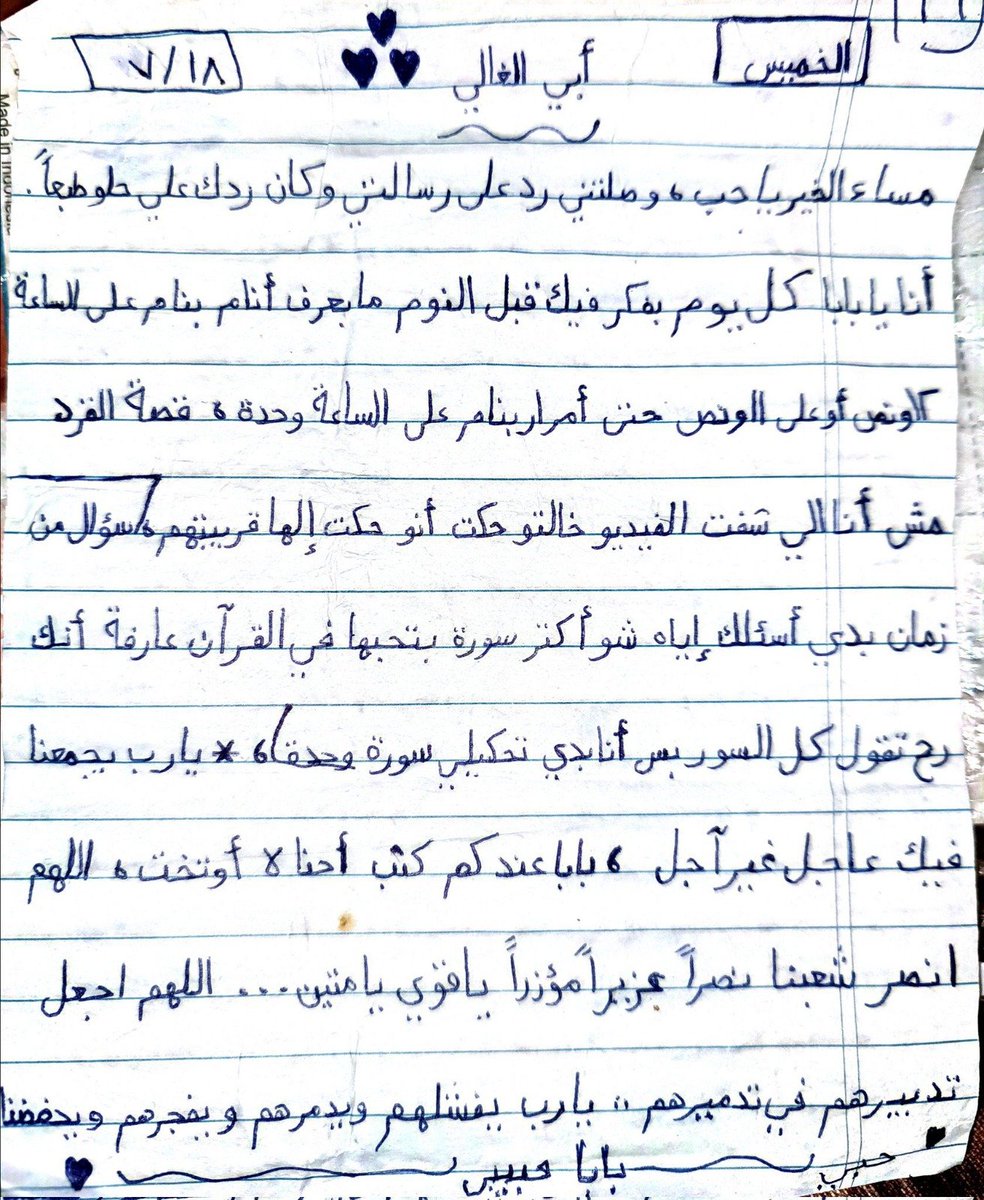 الخميس أبي الغالي ٧/١٨
مساء الخير يا حب، وصلتني رد على رسالتي وكان ردك علي حلو طبعاً.
أنا يا بابا كل يوم بفكر فيك قبل النوم ما بعرف أنام بنام على الساعة
١٢ ونص أو على الونص حتى أمرار بنام على الساعة وحدة، قصة القرد
مش أنا الي شفت الفيديو خالتو حكت أنو حكت إلها قريبتهم، (سؤال من
زمان بدي أسئلك إياه شو أكتر سورة بتحبها في القرآن عارفة أنك
رح تقول كل السور بس أنا بدي تحكيلي سورة وحدة)، * يا رب يجمعنا
فيك عاجل غير آجل، بابا عندكم كنب أحنا لا أو تخت، اللهم
انصر شعبنا نصراً عزيزاً مؤزراً يا قوي يا متين... اللهم اجعل
تدبيرهم في تدميرهم،، يا رب يفشلهم ويدمرهم ويفجرهم ويحفضنا
بابا حبيبي